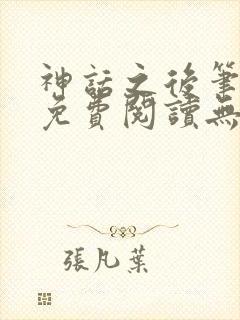 神話之後筆
免費閱讀無
張凡葉